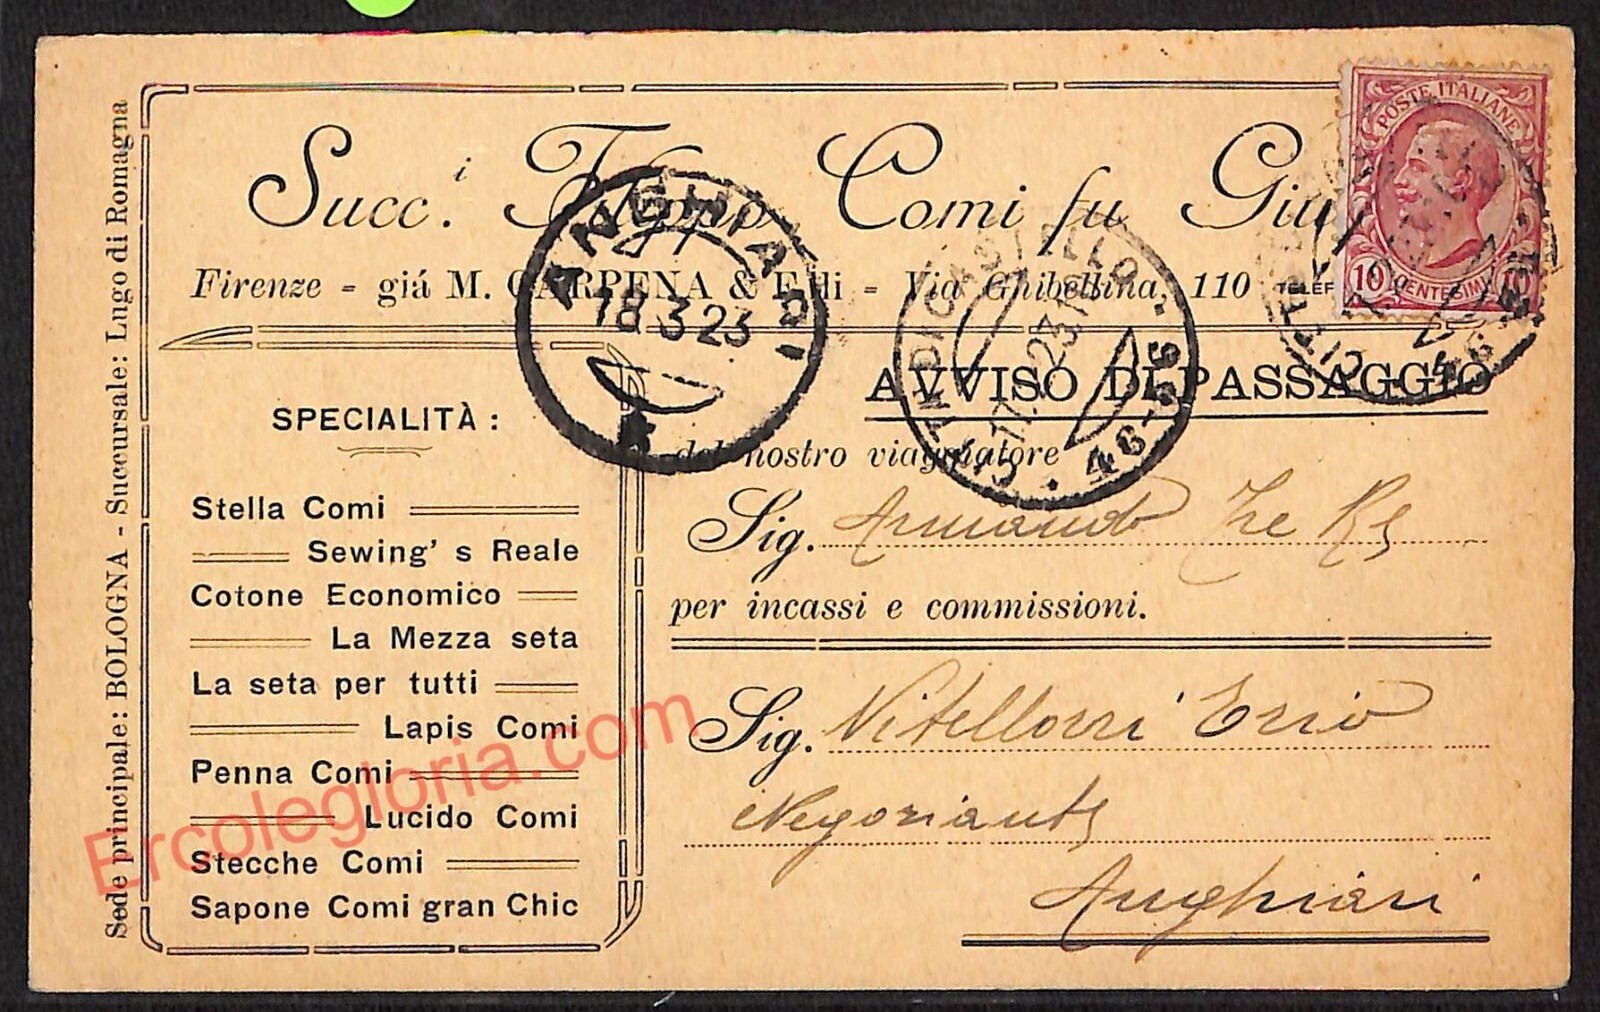 Succ.i Filippo Comi fu Giu
Firenze - giá M. CARPENA & F.lli - Via Ghibellina, 110 TELEF
Sede principale: BOLOGNA - Succursale: Lugo di Romagna
POSTE ITALIANE
10 CENTESIMI 10
ANGHIARI
18.3.23
CITTÀ DI CASTELLO
46-56
AVVISO DI PASSAGGIO
del nostro viaggiatore
Sig. Armando
per incassi e commissioni.
Sig. Vitellozzi Ezio
Negoziante
Anghiari
SPECIALITÀ:
Stella Comi
Sewing' s Reale
Cotone Economico
La Mezza seta
La seta per tutti
Lapis Comi
Penna Comi
Lucido Comi
Stecche Comi
Sapone Comi gran Chic
Ercolegloria.com